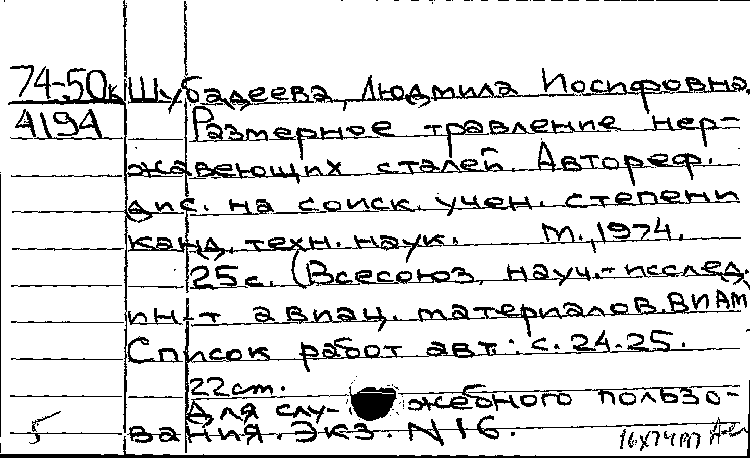 74-50к Шубадеева, Людмила Иосифовна.
А194 Размерное травление нер-
жавеющих сталей. Автореф.
дис. на соиск. учен. степени
канд. техн. наук. М., 1974.
25с. (Всесоюз. науч.-исслед.
ин-т авиац. материалов. ВИАМ
Список работ авт.: с. 24-25.
22см.
Для слу- жебного пользо-
5 вания. Экз. N16.